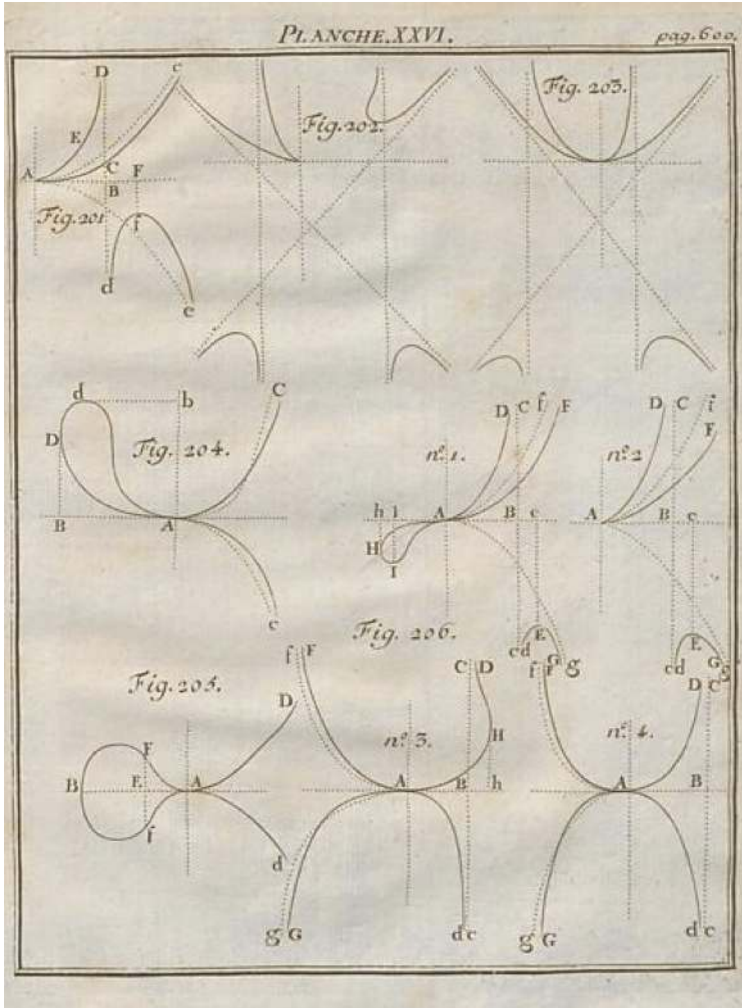 PLANCHE.XXVI. pag.600.
D c
E
A C F
B
Fig.201 f
d
e
Fig.202.
Fig.203.
d b C
D
Fig.204.
B A
c
nº.1.
D C f F
h i A B e
H
I
c d E G g
nº.2
D C i
F
A B e
c d E G g
Fig.206.
Fig.205.
D
F
B E A
f
d
nº.3.
f F C D
H
A B h
g G d c
nº.4.
f F D C
A B
g G d c